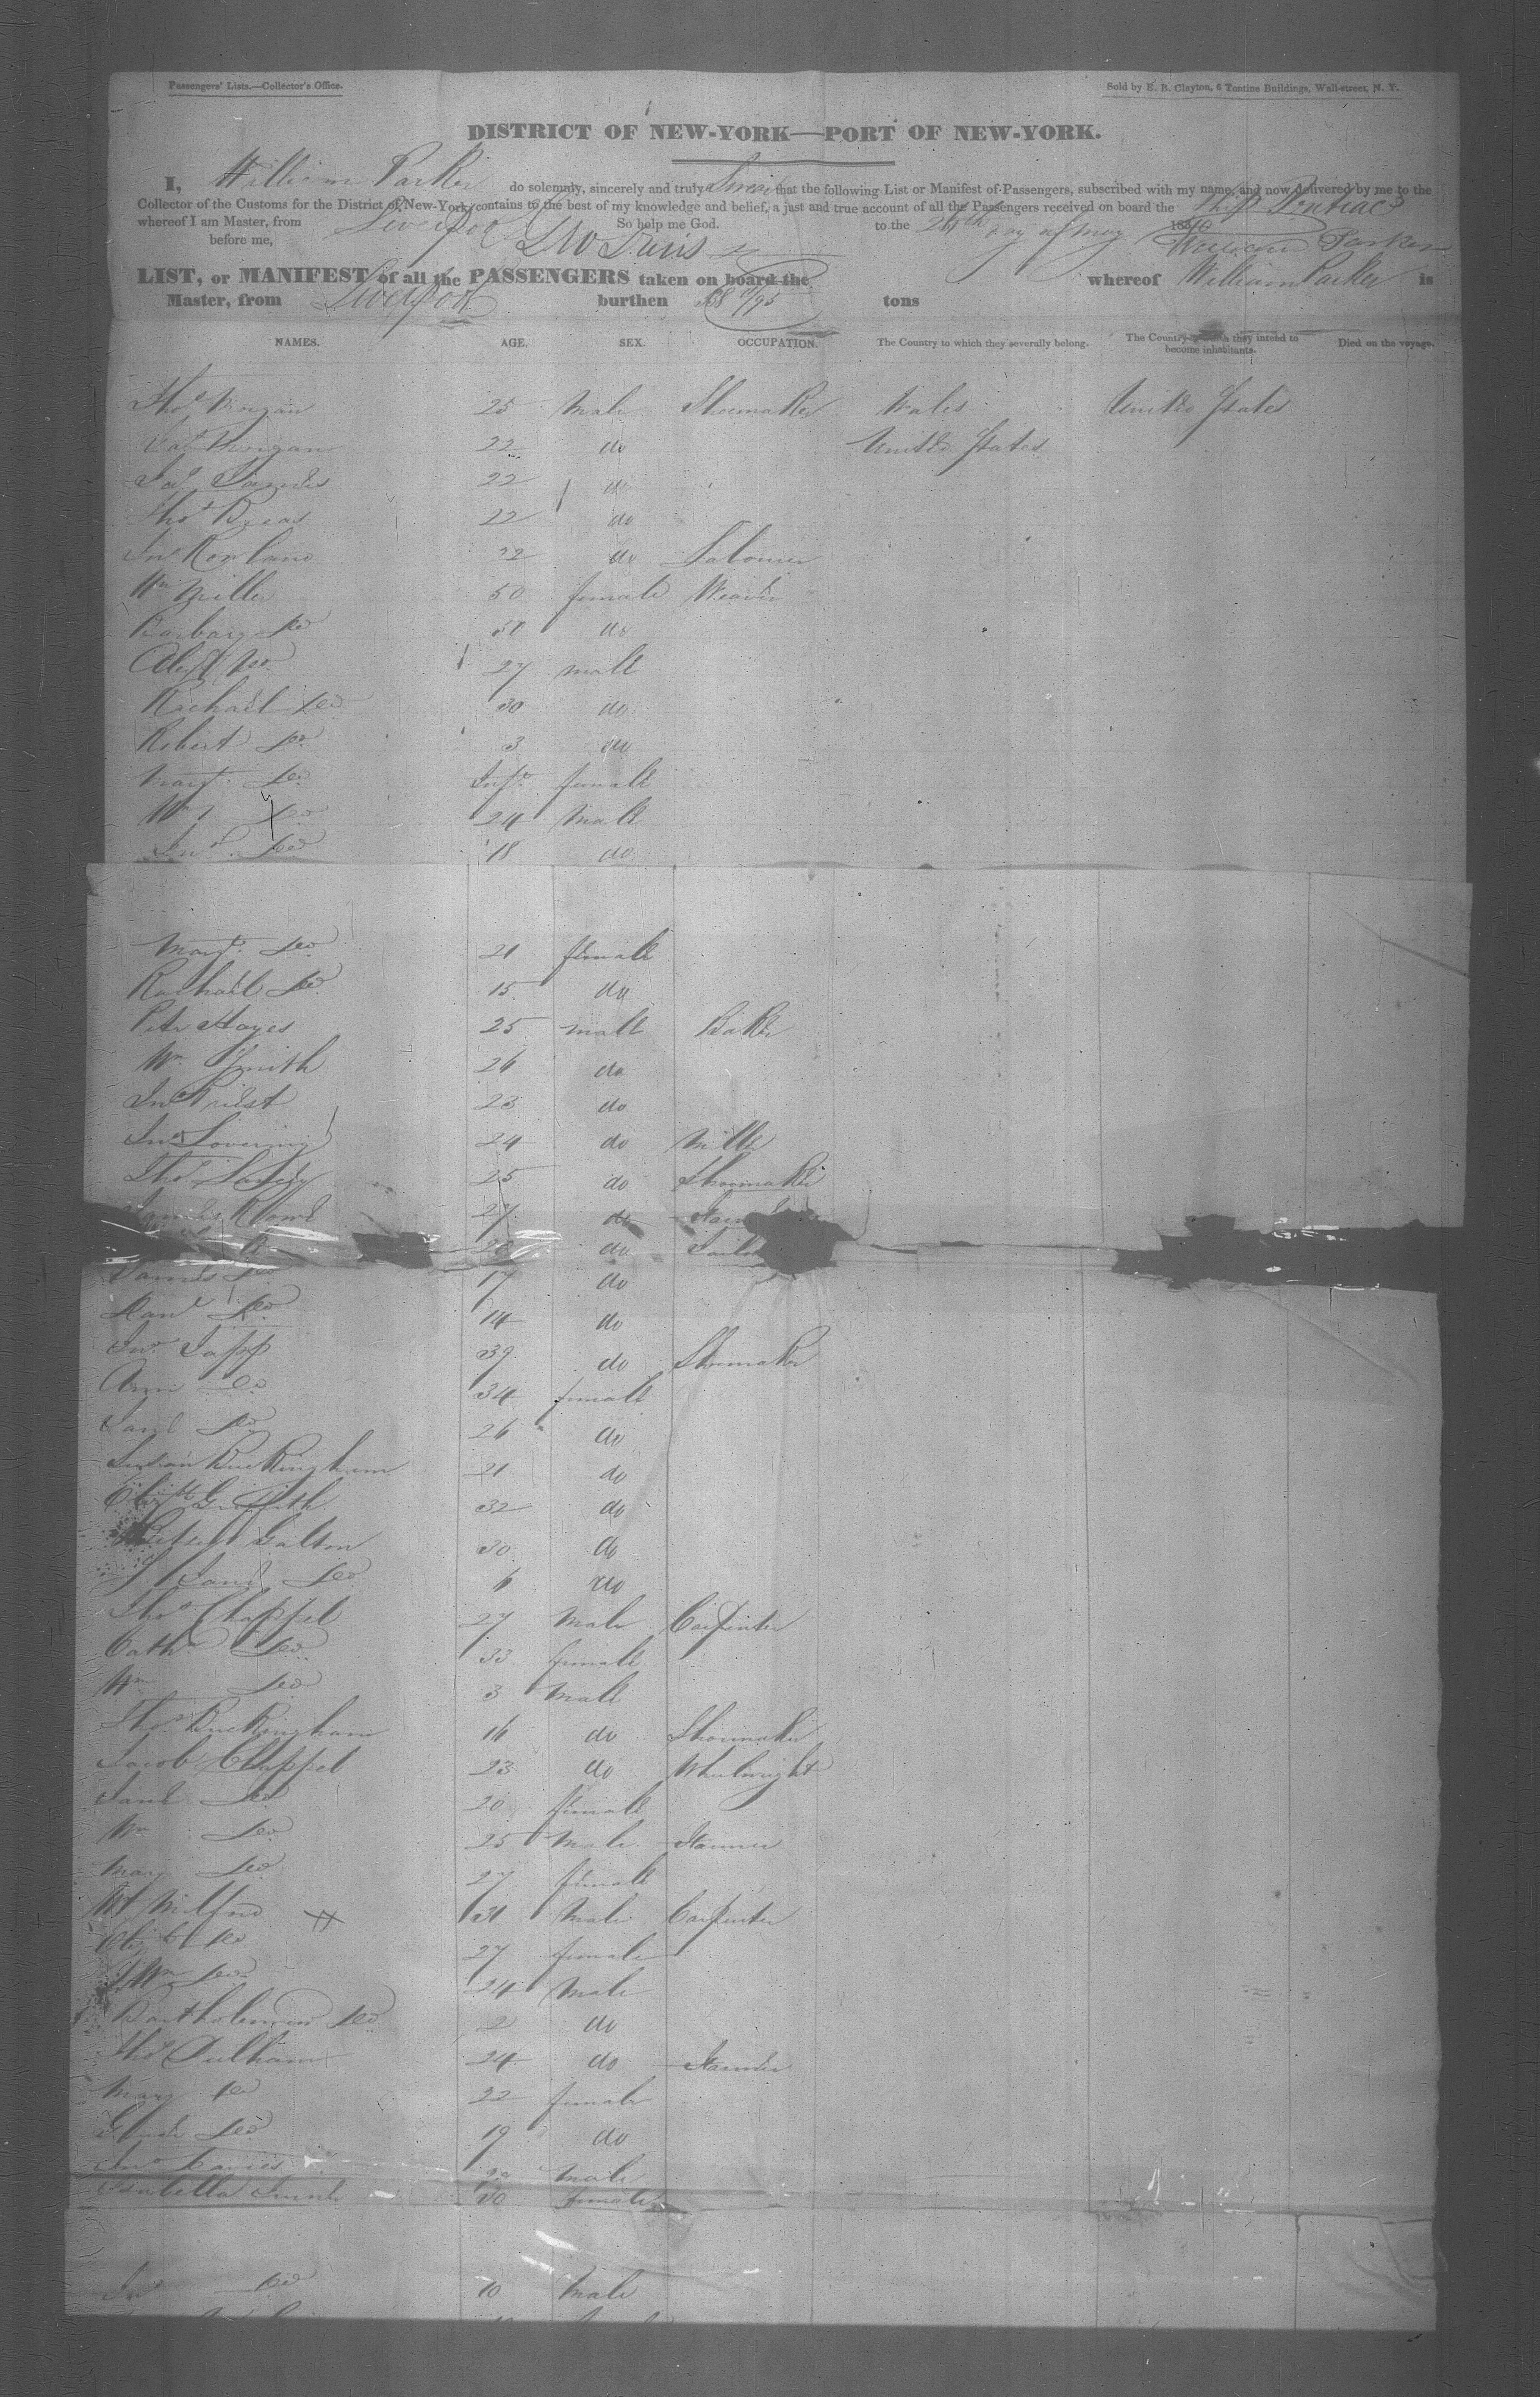 Passengers' Lists.—Collector's Office.
Sold by E. B. Clayton, 6 Tontine Buildings, Wall-street, N. Y.
DISTRICT OF NEW-YORK—PORT OF NEW-YORK.
I, William Parker do solemnly, sincerely and truly Swear that the following List or Manifest of Passengers, subscribed with my name, and now delivered by me to the
Collector of the Customs for the District of New-York, contains to the best of my knowledge and belief, a just and true account of all the Passengers received on board the Ship Pontiac
whereof I am Master, from Liverpool So help me God. to the 26th day of May 1840
before me, William Parker
LIST, or MANIFEST of all the PASSENGERS taken on board the whereof William Parker is
Master, from Liverpool burthen tons
NAMES. AGE. SEX. OCCUPATION. The Country to which they severally belong. The Country in which they intend to become inhabitants. Died on the voyage.
Thos Morgan 25 Male Shoemaker Wales United States
Cath Morgan 22 do United States
22 do
Thos 22 do
Jno Rowland 22 do Labourer
Wm Miller 50 female Weaver
Barbary Do 50 do
Do 27 male
Rachael Do 30 do
Robert Do 3 do
Mart Do Inft female
Wm Do 24 Male
Jno Do 18 do
Mart Do 21 female
Rachael Do 15 do
Peter Hayes 25 male Baker
Wm Smith 26 do
Jno Priest 23 do
Jno Lovering 24 do Miller
Thos 25 do Shoemaker
James 27 do
do
James Do 17 do
Danl Do 14 do
Jno Japp 39 do Shoemaker
Ann Do 34 female
Jane Do 26 do
Susan Buckingham 21 do
Elizth Griffith 32 do
Betsey Galton 30 do
Jane Do 6 do
Thos Chappel 27 Male Carpenter
Cath Do 33 female
Wm Do 3 Male
Thos Buckingham 16 do Shoemaker
Jacob Chappel 23 do Wheelwright
Jane Do 20 female
Wm Do 25 Male Farmer
Mary Do 27 female
Milford 31 Male Carpenter
Elizth Do 27 female
Wm Do 24 Male
Bartholemew Do 2 do
Thos Pulham 24 do Farmer
Mary Do 22 female
Do 19 do
Jno Davies Male
Isabella 30 female
Jno Do 10 Male